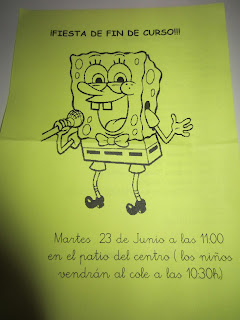 ¡FIESTA DE FIN DE CURSO!!!
Martes 23 de Junio a las 11:00
en el patio del centro ( los niños
vendrán al cole a las 10:30h)